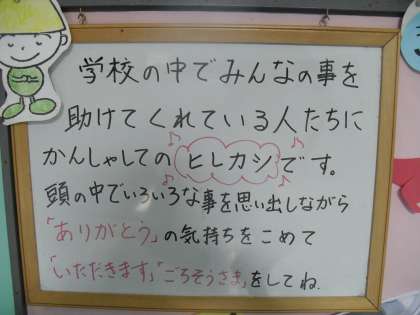 学校の中でみんなの事を
助けてくれている人たちに
かんしゃしての ヒレカツ です。
頭の中でいろいろな事を思い出しながら
「ありがとう」の気持ちをこめて
「いただきます」「ごちそうさま」をしてね.